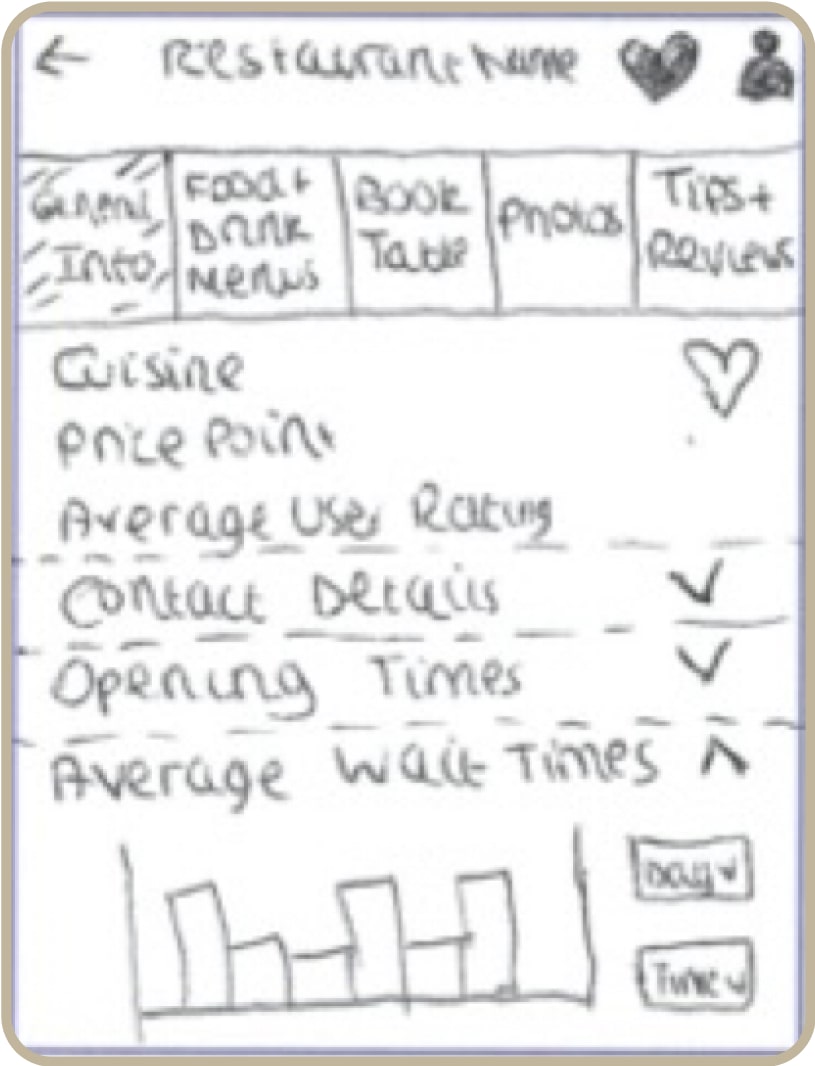 Restaurant Name
General
Info
Food +
Drink
Menus
Book
Table
Photos
Tips +
Reviews
Cuisine
Price Point
Average User Rating
Contact Details
Opening Times
Average Wait Times
Day
Time